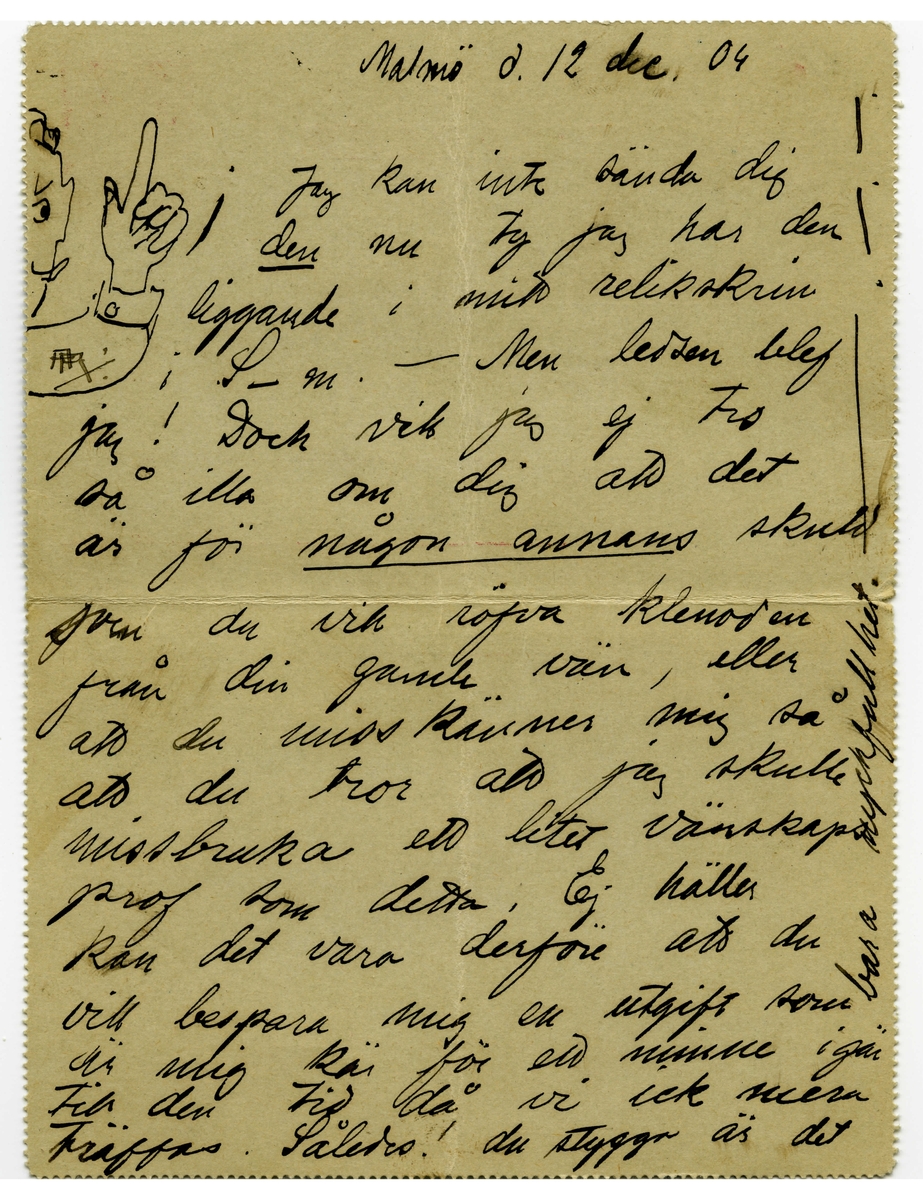 Malmö d. 12 dec. 04
Jag kan inte sända dig
den nu ty jag har den
liggande i mitt relikskrin
i S–m. — Men ledsen blef
jag! Dock vill jag ej tro
så illa om dig att det
är för någon annans skull
som du vill röfva klenoden
från din gamle vän, eller
att du misskänner mig så
att du tror att jag skulle
missbruka ett litet vänskaps
prof som detta. Ej häller
kan det vara derföre att du
vill bespara mig en utgift som
är mig kär för ett minne
till den tid då vi ick mera
träffas. Således! du stygga är det
bara nyckfullhet.